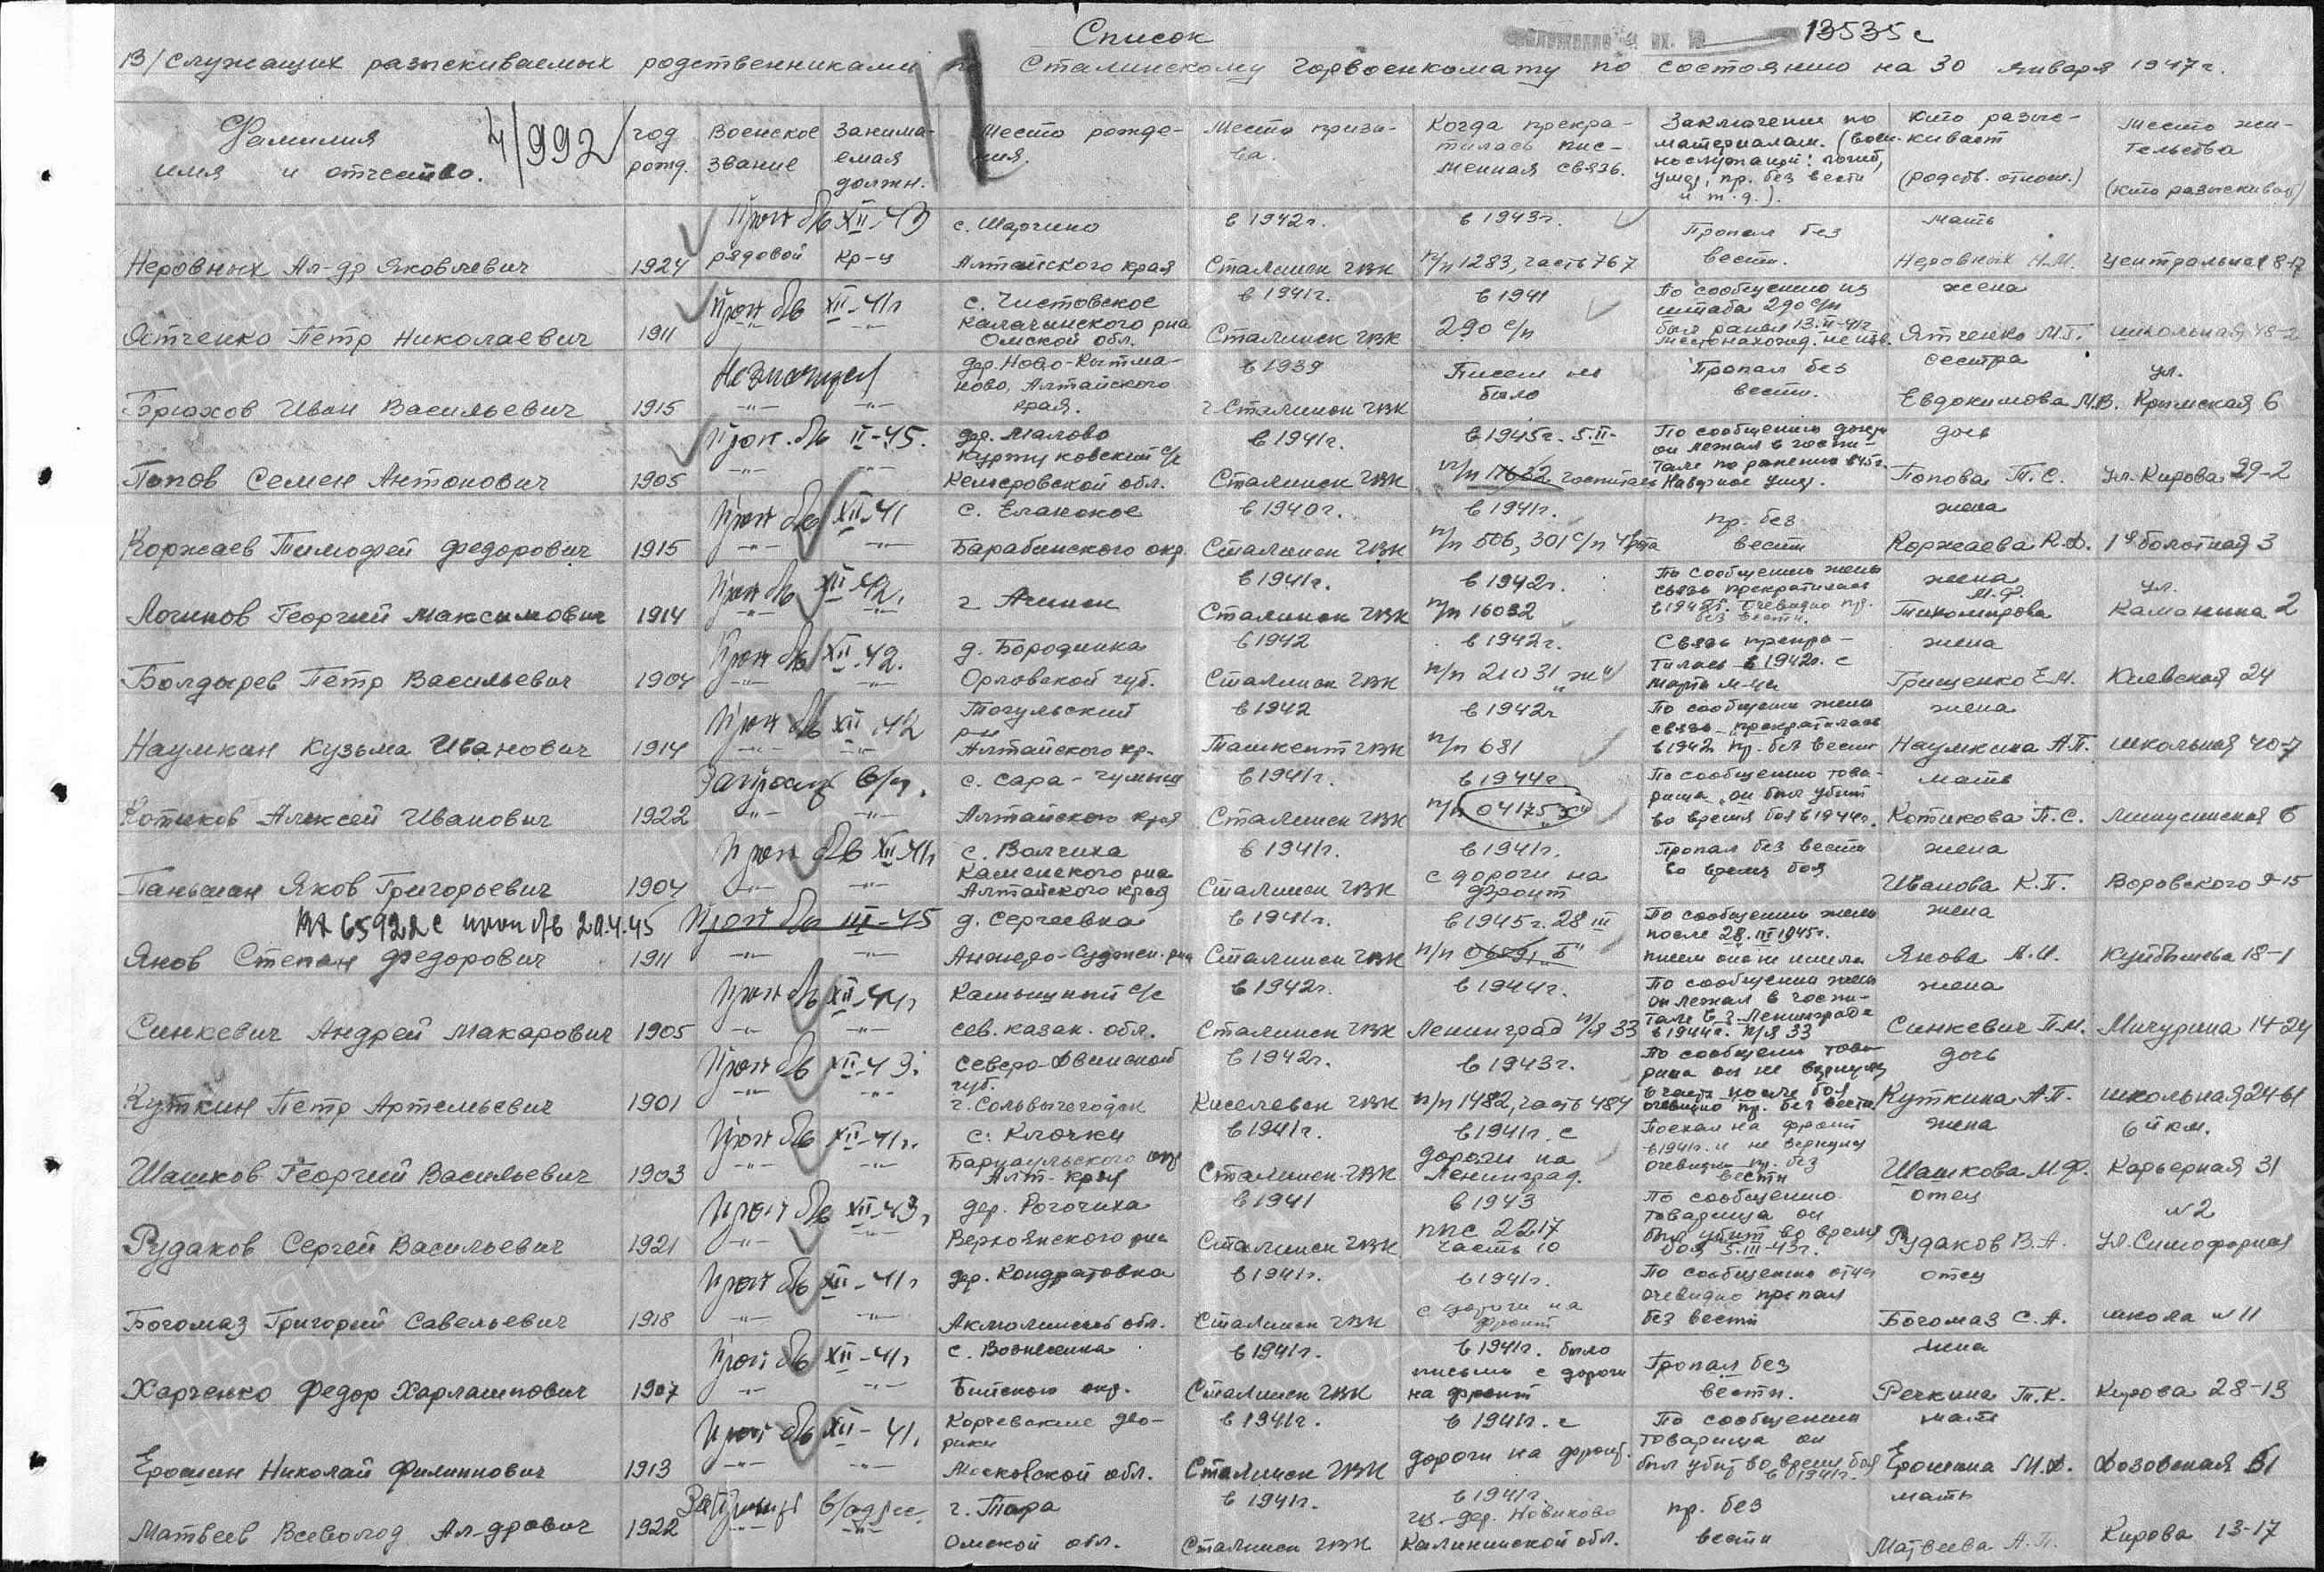 Список
13535с
В/служащих разыскиваемых родственниками по Сталинскому горвоенкомату по состоянию на 30 января 1947г.
Фамилия имя и отчество. 4/992 год рожд. Военское звание Занимаемая должн. Место рождения. Место призыва. Когда прекратилась писменная связь. Заключение по материалам. (военнослужащий: погиб, умер, пр. без вести и т.д.). Кто разыскивает (родств. отнош.) Место жительства (кто разыскивает)
Неровных Ал-др Яковлевич 1924 рядовой кр-ц проп б/в XII-43 с. Шарчино Алтайского края в 1942г. Сталинск ГВК в 1943г. п/п 1283, часть 767 Пропал без вести. мать Неровных Н.М. Центральная 8-17
Ятченко Петр Николаевич 1911 -"- -"- проп б/в XII-41г с. Чистовское Калачинского р-на Омской обл. в 1941г. Сталинск ГВК в 1941 290 с/п По сообщению из штаба 290 с/п был ранен местонахожд. не изв. жена Ятченко М.Г. школьная 48-2
Брюхов Иван Васильевич 1915 -"- -"- дер. Ново-Кытманово, Алтайского края. в 1939 г. Сталинск ГВК Писем не было Пропал без вести. сестра Евдокимова М.В. ул. Крымская 6
Попов Семен Антонович 1905 -"- -"- проп. б/в II-45. дер. Малово с/с Кемеровской обл. в 1941г. Сталинск ГВК в 1945г. 5.II- п/п 17632 госпиталь По сообщению дочери он лежал в госпитале по ранению в 45г. Наверное умер. дочь Попова Т.С. ул. Кирова 29-2
Коржаев Тимофей Федорович 1915 -"- -"- проп б/в XII-41 с. Еланское Барабинского окр. в 1940г. Сталинск ГВК в 1941г. п/п 506, 301 с/п 4 рота пр. без вести жена Коржаева К.Ф. 1я болотная 3
Логинов Георгий Максимович 1914 -"- -"- проп б/в XII-42. г. Ачинск в 1941г. Сталинск ГВК в 1942г. п/п 16032 По сообщению жены связь прекратилась Очевидно пр. без вести. жена Тихомирова М.Ф. ул. Каманина 2
Болдырев Петр Васильевич 1904 -"- -"- проп б/в XII-42. д. Бородинка Орловской губ. в 1942 Сталинск ГВК в 1942г. п/п 21031 "ж" Связь прекратилась в 1942г. с марта м-ца жена Грищенко Е.М. Киевская 24
Наумкин Кузьма Иванович 1914 -"- -"- проп б/в XII-42 Тогульский р-н Алтайского кр. в 1942 Ташкент ГВК в 1942г п/п 681 По сообщению жены связь прекратилась в 1942 пр. без вести жена Наумкина А.П. школьная 40-7
Котиков Алексей Иванович 1922 -"- -"- с. Сара-Чумыш Алтайского края в 1941г. Сталинск ГВК в 1944г п/п 04175 По сообщению товарища он был убит во время боя в 1944г. мать Котикова П.С. Минусинская 6
Паньшин Яков Григорьевич 1904 -"- -"- проп б/в XII-41г с. Волчиха Каменского р-на Алтайского края в 1941г. Сталинск ГВК в 1941г. с дороги на фронт Пропал без вести во время боя жена Иванова К.П. Воровского 9-15
65922с проп б/в
проп б/в III-45
Янов Степан Федорович 1911 -"- -"- д. Сергеевка Анжеро-Суджен. р-на в 1941г. Сталинск ГВК в 1945г. 28 III По сообщению жены после 28.III 1945г. писем она не имела жена Янова А.И. Куйбышева 18-1
Синкевич Андрей Макарович 1905 -"- -"- проп б/в XII-44г Камышный с/с сев. казах. обл. в 1942г. Сталинск ГВК в 1944г. Ленинград п/я 33 По сообщению жены он лежал в госпитале в г. Ленинграде в 1944г. п/я 33 жена Синкевич П.М. Мичурина 14-24
Куткин Петр Артемьевич 1901 -"- -"- проп б/в XII-43. Северо-Двинской губ. г. Сольвычегодск в 1942г. Киселевск ГВК в 1943г. п/п 1482, часть 484 По сообщени товарища он не вернулся в часть после боя очевидно пр. без вести дочь Куткина А.П. школьная 24-61
Шашков Георгий Васильевич 1903 -"- -"- проп б/в XII-41г. с. Ключки Барнаульского окр Алт. края в 1941г. Сталинск ГВК в 1941г. с дороги на Ленинград. Поехал на фронт в 1941г. и не вернулся очевидно пр. без вести жена Шашкова М.Ф. 6й км. Карьерная 31
Рудаков Сергей Васильевич 1921 -"- -"- проп б/в XII-43г дер. Рогочиха в 1941 Сталинск ГВК в 1943 ппс 2217 часть 10 По сообщению товарища он был убит во время боя 5.III-43г. отец Рудаков В.А. №2
Богомаз Григорий Савельевич 1918 -"- -"- проп б/в XII-41г дер. Кондратовка Акмолинской обл. в 1941г. Сталинск ГВК в 1941г. с дороги на фронт По сообщению отца очевидно пропал без вести отец Богомаз С.А. школа №11
Харченко Федор Харлампович 1907 -"- -"- проп б/в XII-41г с. Вознесенка Бийского окр. в 1941г. Сталинск ГВК в 1941г. было письмо с дороги на фронт Пропал без вести. жена Речкина Т.К. Кирова 28-13
Ерошин Николай Филиппович 1913 -"- -"- проп б/в XII-41. Корчевские дворики Московской обл. в 1941г. Сталинск ГВК в 1941г. с дороги на фронт. По сообщению товарища он был убит во время боя в 1941г. мать Ерошина М.Ф. 61
Матвеев Всеволод Ал-дрович 1922 -"- -"- г. Тара Омской обл. в 1941г. Сталинск ГВК в 1941г. из дер. Новиково Калининской обл. пр. без вести мать Матвеева А.П. Кирова 13-17